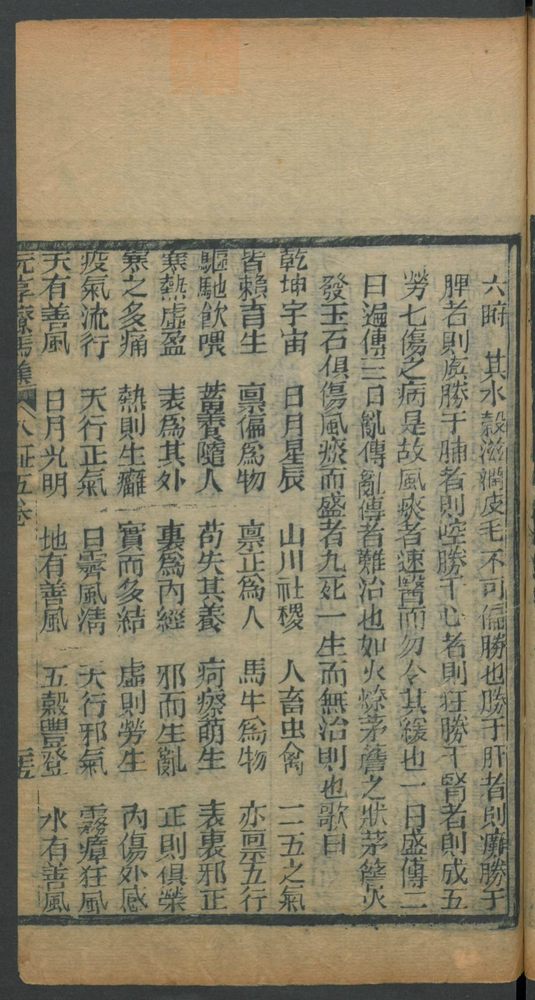 六附 其水穀滋潤皮毛不可偏勝也勝于肝者則癱勝于
脾者則癀勝于肺者則啌勝于心者則狂勝于腎者則成五
勞七傷之病是故風痰者速醫而勿令其緩也一日盛傳二
日遍傳三日亂傳亂傳者難治也如火燎茅簷之狀茅簷火
發玉石俱傷風痰而盛者九死一生而無治則也歌曰
乾坤宇宙 日月星辰 山川社稷 人畜虫禽 二五之氣
皆賴育生 禀偏爲物 禀正爲人 馬牛爲物 亦禀五行
驅馳飲喂 蓄養隨人 苟失其養 疴瘵萌生 表裏邪正
寒熱虛盈 表爲其外 裏爲内經 邪而生亂 正則俱榮
寒之多痛 熱則生癰 實而多結 虛則勞生 内傷外感
疫氣流行 天行正氣 日霽風清 天行邪氣 霧瘴狂風
天有善風 日月光明 地有善風 五穀豐登 水有善風
元亨療馬集 八証五卷